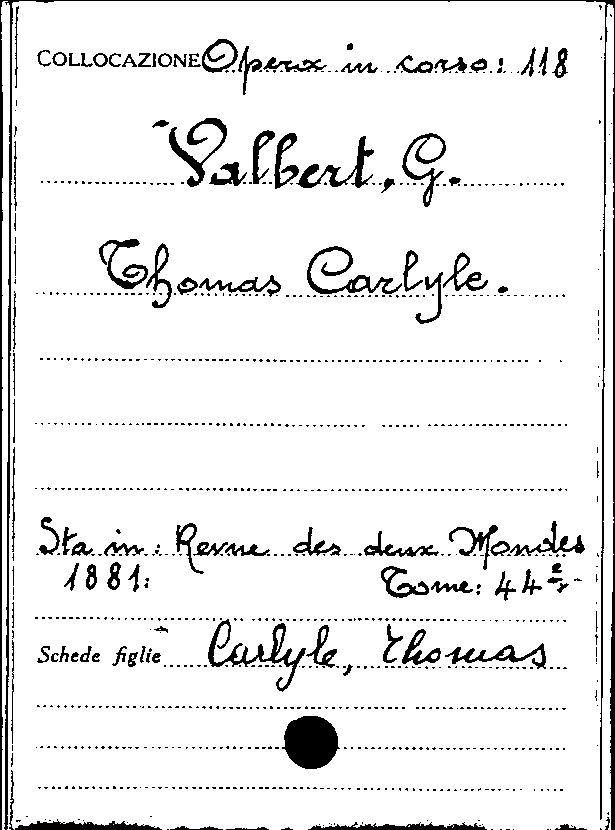 COLLOCAZIONE Opera in corso: 118
Valbert, G.
Thomas Carlyle.
Sta in: Revue des deux Mondes
1881: Tome: 44e
Schede figlie Carlyle, Thomas